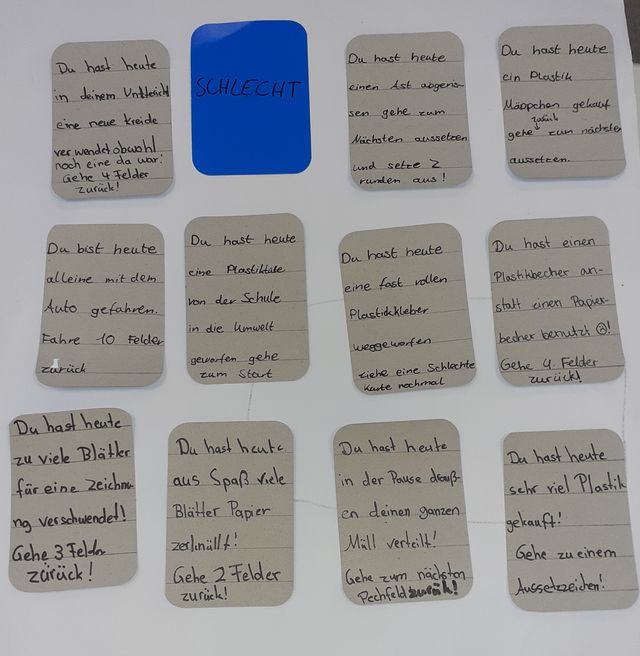 Du hast heute
in deinem Unterricht
eine neue Kreide
verwendet obwohl
noch eine da war!
Gehe 4 Felder
zurück!
SCHLECHT
Du hast heute
einen Ast abgeris-
sen gehe zum
Nächsten aussetzen
und setze 2
runden aus!
Du hast heute
ein Plastik
Mäppchen gekauf
zurück
gehe zum nächsten
aussetzen.
Du bist heute
alleine mit dem
Auto gefahren.
Fahre 10 Felder
zurück
Du hast heute
eine Plastiktüte
von der Schule
in die Umwelt
geworfen gehe
zum Start
Du hast heute
eine fast vollen
Plastikkleber
weggeworfen
ziehe eine Schlechte
Karte nochmal
Du hast einen
Plastikbecher an-
statt einen Papier-
becher benutzt ☹!
Gehe 4 Felder
zurück!
Du hast heute
zu viele Blätter
für eine Zeichnu-
ng verschwendet!
Gehe 3 Felder
zürück!
Du hast heute
aus Spaß viele
Blätter Papier
zerknüllt!
Gehe 2 Felder
zurück!
Du hast heute
in der Pause drauß-
en deinen ganzen
Müll verteilt!
Gehe zum nächsten
Pechfeld zurük!
Du hast heute
sehr viel Plastik
gekauft!
Gehe zu einem
Aussetzzeichen!